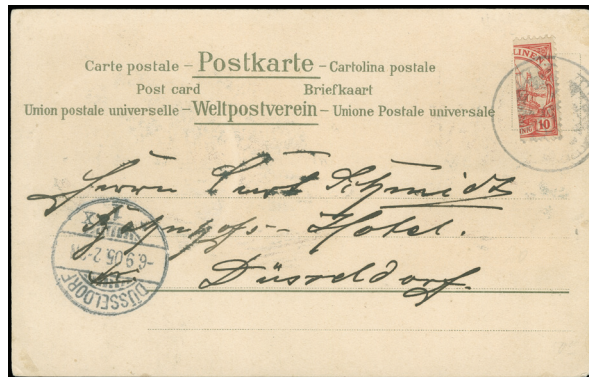 Carte postale – Postkarte – Cartolina postale
Post card Briefkaart
Union postale universelle – Weltpostverein – Unione Postale universale
LINEN
10
Herrn Curt Schmidt
Bahnhofs-Hotel.
Düsseldorf.
DÜSSELDORF
-6.9.05.2-